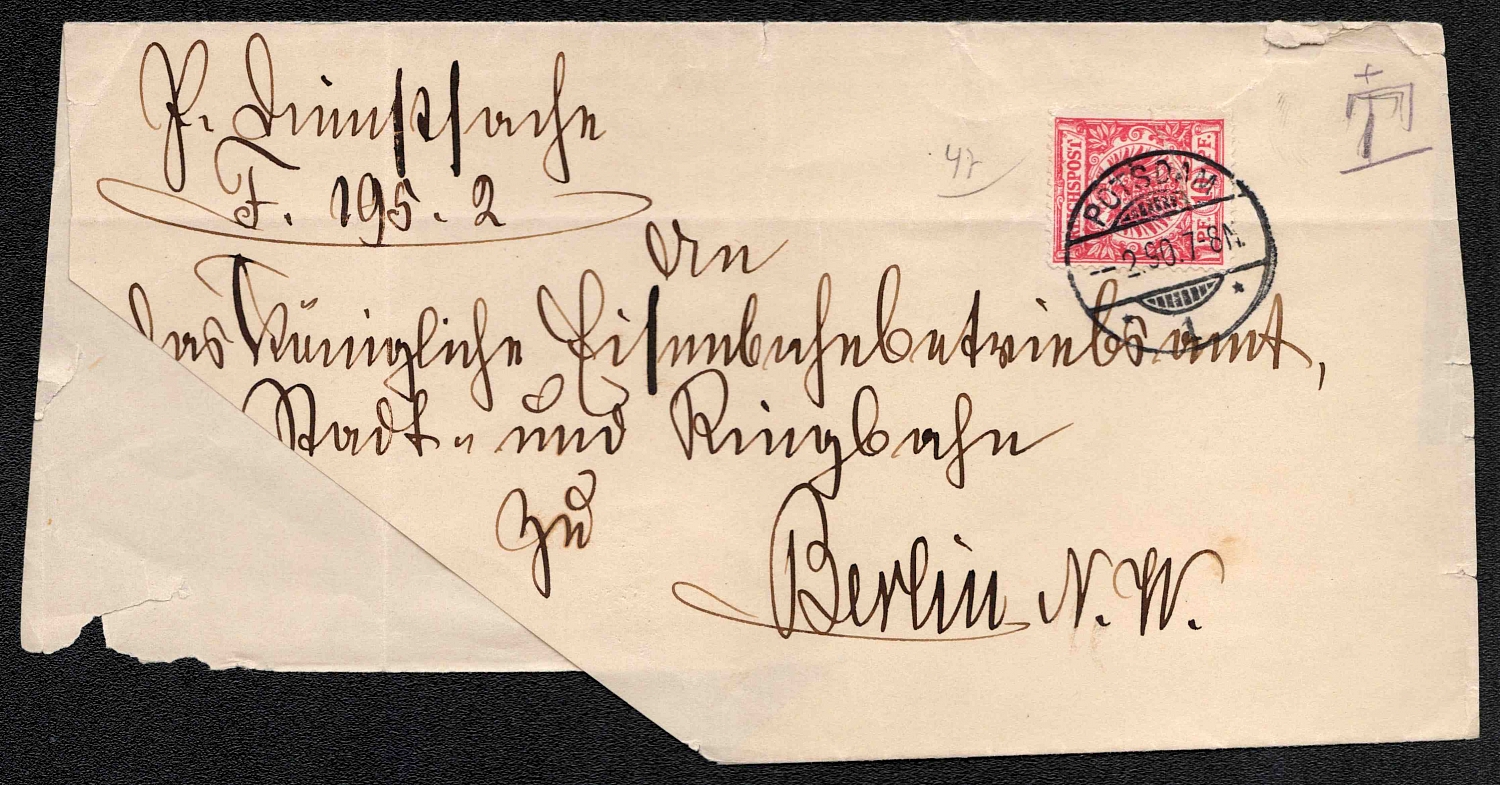 P. Dienstsache
F. 195. 2
47
An
das Königliche Eisenbahnbetriebsamt,
Stadt- und Ringbahn
zu
Berlin N. W.
REICHSPOST
10 PF.
POTSDAM
2.90.7-8N.
* 1 *